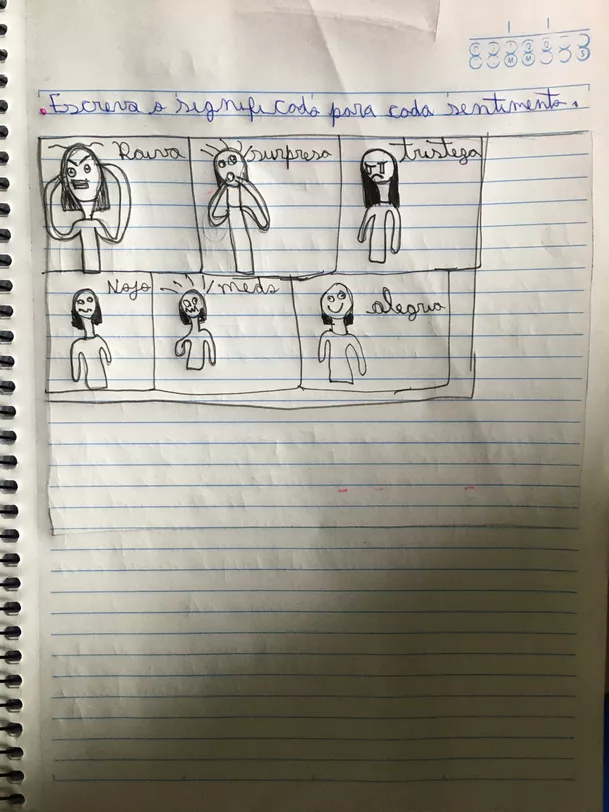 Escreva o significado para cada sentimento.
Raiva surpresa tristeza
Nojo medo alegria